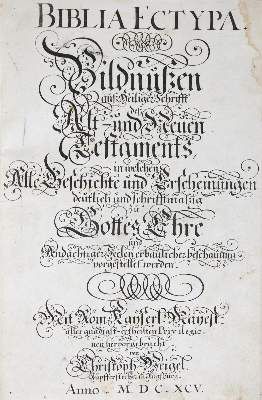 BIBLIA ECTYPA.
Bildnüßen
auß Heiliger Schrifft
deß
Alt- und Neuen
Testaments,
in welchen
Alle Geschichte und Erscheinungen
deutlich und schrifftmäßig
zu
Gottes Ehre
und
Andächtiger Seelen erbaulicher beschauung
vorgestellet werden.
Mit Röm. Kayserl. Mayest.
aller gnädigst-ertheilten Privilegio
hervorgebracht
von
Christoph Weigel,
Kupfferstecher in Augspurg.
Anno M D C XCV.